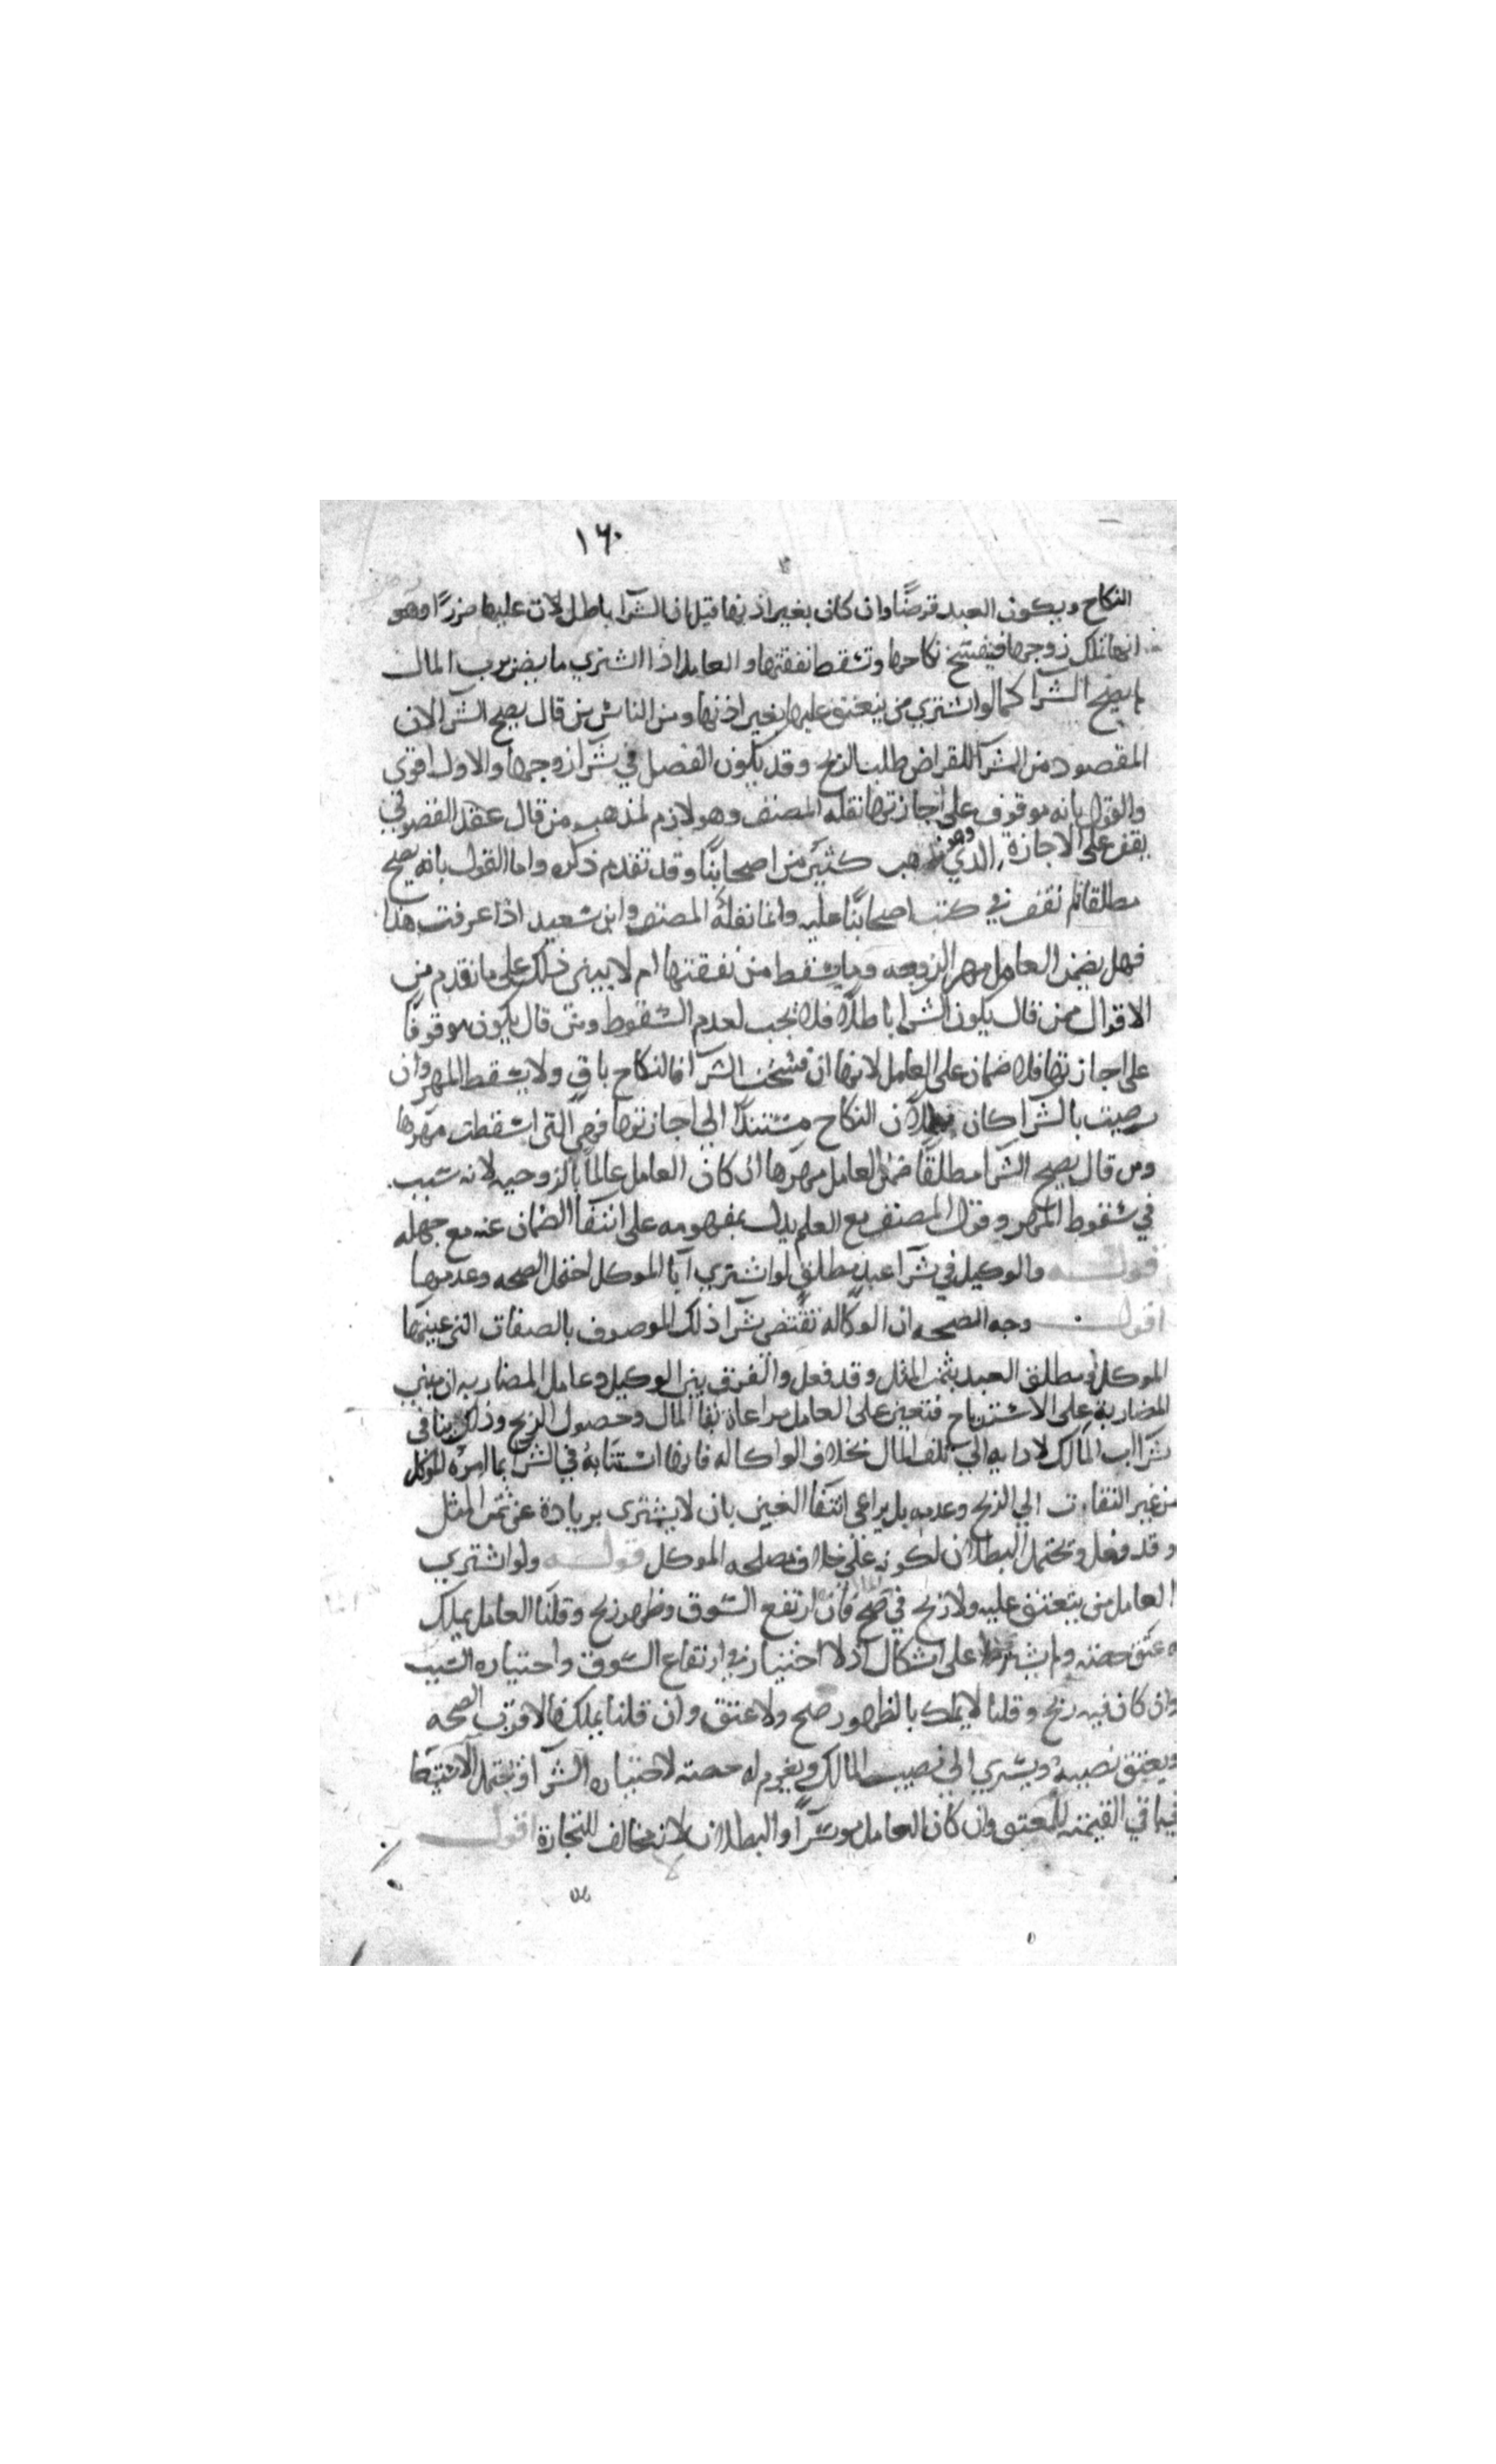 ١٦٠
النكاح ويكون العبد قرضًا وان كان بغير اذنها قيل ان الشرآ باطل لان عليها ضررًا وهو
انها تملك زوجها فينفسخ نكاحها وتسقط نفقتها والعامل اذا اشتري ما يضر برب المال
لم يصح الشرا كما لو اشتري من ينعتق عليها بغير اذنها ومن الناس من قال يصح الشرا لان
المقصود من الشرآ للقراض طلب الربح وقد يكون الفضل في شرآ زوجها والاول اقوي
والقول بانه موقوف علي اجازتها نقله المصنف وهو لازم لمذهب من قال عقد الفضولي
يقف علي الاجازة وهو الذي ذهب كثير من اصحابنا وقد تقدم ذكره واما القول بانه يصح
مطلقا لم نقف في كتب اصحابنا عليه وانما نقله المصنف وابن سعيد اذا عرفت هذا
فهل يضمن العامل مهر الزوجه وما يسقط من نفقتها ام لا يبني ذلك علي ما تقدم من
الاقوال فمن قال يكون الشرا باطلا فلا يجب لعدم السقوط ومن قال يكون موقوفا
علي اجازتها فلا ضمان علي العامل لانها ان فسخت الشرآ فالنكاح باق ولا يسقط المهر وان
رضيت بالشرا كان بطلان النكاح مستندًا الي اجازتها فهي التي اسقطت مهرها
ومن قال يصح الشرآ مطلقًا ضمن العامل مهرها ان كان العامل عالمًا بالزوجيه لانه سبب
في سقوط المهر وقول المصنف مع العلم يدل بمفهومه علي انتفآ الضمان عنه مع جهله
قوله والوكيل في شرآ عبد مطلق لو اشتري ابا الموكل احتمل الصحه وعدمها
اقول وجه الصحه ان الوكاله تقتضي شرآ ذلك الموصوف بالصفات التي عينها
الموكل او مطلق العبد بثمن المثل وقد فعل والفرق بين الوكيل وعامل المضاربه ان مبني
المضاربة علي الاسترباح فتعين علي العامل مراعاة بقآ المال وحصول الربح وذلك ينافي
شرآ اب المالك لادايه الي تلف المال بخلاف الواكاله فانها استنابة في الشرا بما امره الموكل
من غير التفات الي الربح وعدمه بل يراعي انتفآ الغبن بان لا يشتري بزيادة عن ثمن المثل
وقد فعل ويحتمل البطلان لكونه علي خلاف مصلحه الموكل قوله ولو اشتري
العامل من ينعتق عليه ولا ربح في صح فان ارتفع السوق وظهر ربح وقلنا العامل يملك
به عتق حصته ولم علي اشكال اذ لا اختيار في ارتفاع السوق واختياره السبب
وان كان فيه ربح وقلنا لا يملك بالظهور صح ولا عتق وان قلنا يملك فالاقرب الصحه
ويعتق نصيبه ويسري الي نصيب المالك ويغرم له حصته لاختياره الشرآ ويحتمل الاستسعآ
في باقي القيمة للمعتق وان كان العامل موسرًا والبطلان لانه مخالف للتجارة اقول